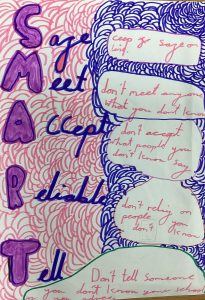 Safe
safe
Meet
don't meet anyone
what you don't know
Accept
don't accept
what people you
don't know say
Reliable
don't reliy on
people you
don't know
Tell
Don't tell someone
you dont know your school